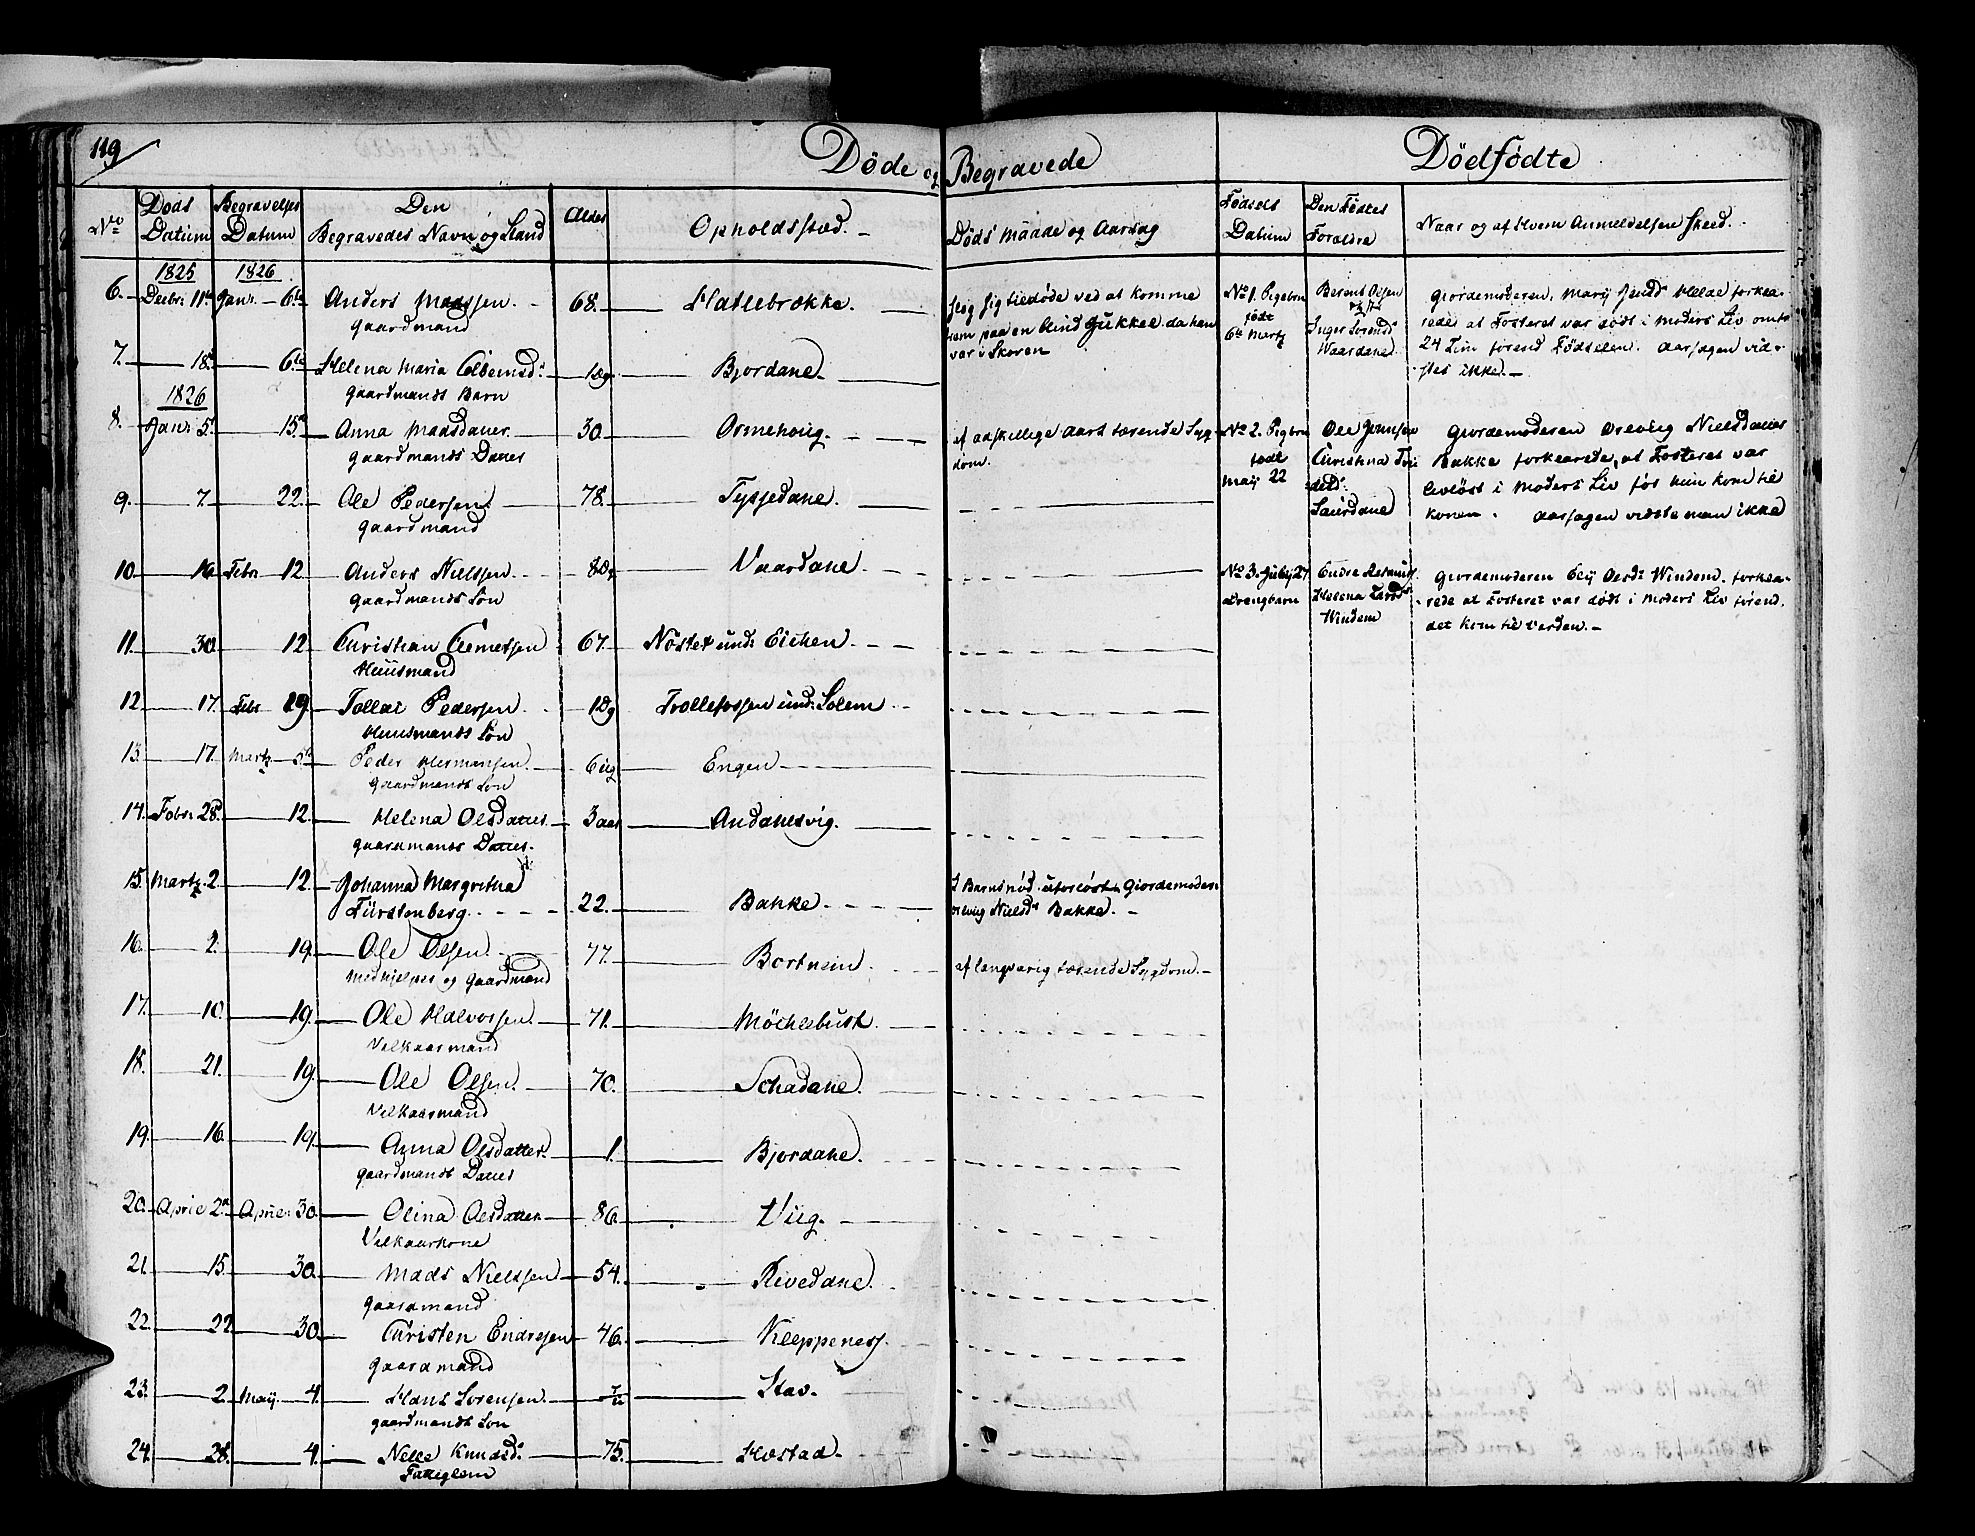 119
Døde og Begravede
Dødfødte
No
Døds Datum
Begravelses Datum
Den Begravedes Navn og Stand
Alder
Opholdssted.
Døds Maade og Aarsag
Fødsels Datum
Den Fødtes Forældre
Naar og af Hvem Anmeldelsen Skeed.
1825 1826
6. Decbr 11te Janr. 6te Anders Madssen. 68. Hatlebrække. slog sig tildøde ved at komme
Gaardmand frem paa en blind Jukkel da han
var i Skoven
7. 18. 6te Helena Maria Colbensd: 1 Dg Bjordane.
Gaardmands Barn
1826
8. Janr 5. 15de Anna Madsdatter. 30. Ormehoug. af adskillige Aars tærende Syg
Gaardmands Datter dom.
9. 7. 22. Ole Pedersen. 78. Tyssedane.
Gaardmand
10. 16. Febr 12. Anders Nielssen. 8 Dg Vaardane.
Gaardmands Søn
11. 30. 12. Christian Clemetsen 67. Nøstet und: Eichen.
Huusmand
12. 17. Febr 19. Tollac Pedersen. 1 Dg Trollefossen und: Solem
Huusmands Søn
13. 17. Martz 5te Peder Hermansen. 6 Ug Engen
Gaardmands Søn
14. Febr: 28. 12. Helena Olsdatter. 3 aar Andalsvig.
Gaardmands Datter.
15. Martz 2. 12. Johanna Margretha 22. Bakke. I Barnsnød uforløst. Giordemoder:
Fürstenberg. Nielsd: Bakke.
16. 2. 19. Ole Olsen. 77. Bortnem. af langvarig tærende Sygdom.
Medhjelper og Gaardmand
17. 10. 19. Ole Halvorsen. 71. Möchlebust.
Velkaarmand
18. 21. 19. Ole Olsen. 70. Schadane.
Velkaarmand
19. 16. 19. Anna Olsdatter. 1. Bjordane.
Gaardmands Datter
20. April 2. April 30. Olina Olsdatter 86. Viig.
Velkaarkone
21. 15. 30. Mads Nielssen 54. Rivedane.
Gaardmand
22. 22. 30. Christen Endresen 46. Kleppenes.
Gaardmand
23. 2. Maij. 4. Hans Sørensen. Stav.
Gaardmands Søn
24. 28. 4. Nille Knudsd: 75. Hostad.
Fattiglem
No 1. Pigebrn født 6te Martz
Berent Olsen
Inger Sørensd: Vaardane.
Giordemoderen, Marij Jensd: Helde forkla-
rede at Fosteret var dødt i Moders Liv omtr
24 Tim forend Fødselen. Aarsagen vid-
stes ikke.
No 2. Pigebrn født Maij 22
Ole Jonnsen
Christina
Giordemoderen Nielsdatter
Bakke forklarede, at Fosteret var
livløst i Moders Liv før hun kom til
Konen. Aarsagen vidste man ikke
No 3. Julij 27 Drengbarn
Endre Rasmus:
Helena Larsd:
Vindem
Giordemoderen Elij Olsd: Windem. forkla-
rede at Fosteret var dødt i Moders Liv førend
det kom til Verden.